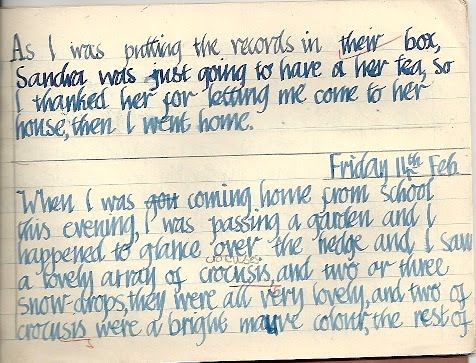 As I was putting the records in their box,
Sandra was just going to have a her tea, so
I thanked her for letting me come to her
house, then I went home.
Friday 11th Feb
When I was you coming home from school
this evening, I was passing a garden and I
happened to glance over the hedge and I saw
crocuses
a lovely array of crocusis, and two or three
snow-drops, they were all very lovely, and two of
crocusis were a bright mauve colour, the rest of